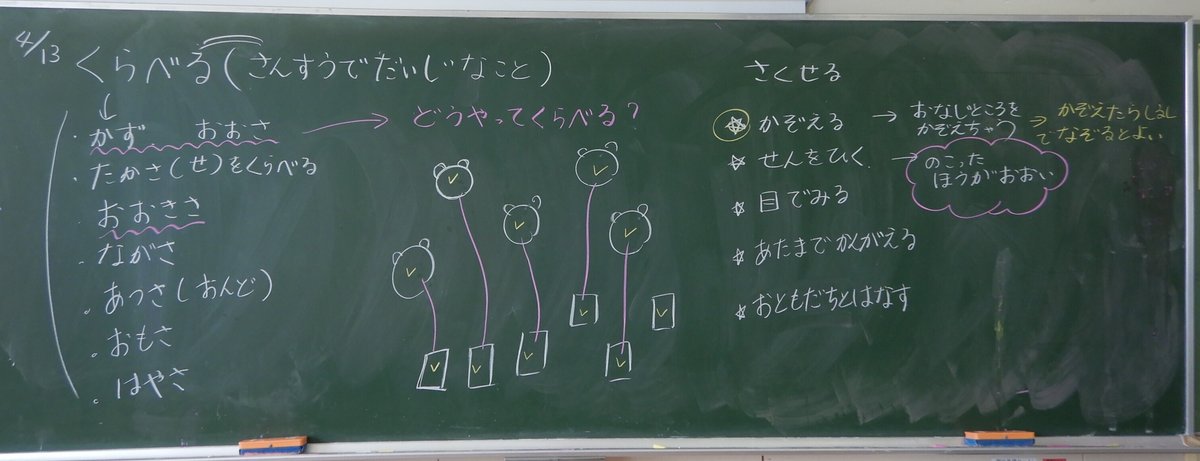 4/13
くらべる(さんすうでだいじなこと)
かず おおさ
どうやってくらべる?
・たかさ(せ)をくらべる
・おおきさ
・ながさ
・あつさ(おんど)
・おもさ
・はやさ
さくせる
☆かぞえる
→おなじところを
かぞえちゃう
⇒かぞえたらしるし
でなぞるとよい
☆せんをひく
→のこった
ほうがおおい
☆目でみる
☆あたまでかんがえる
☆おともだちとはなす